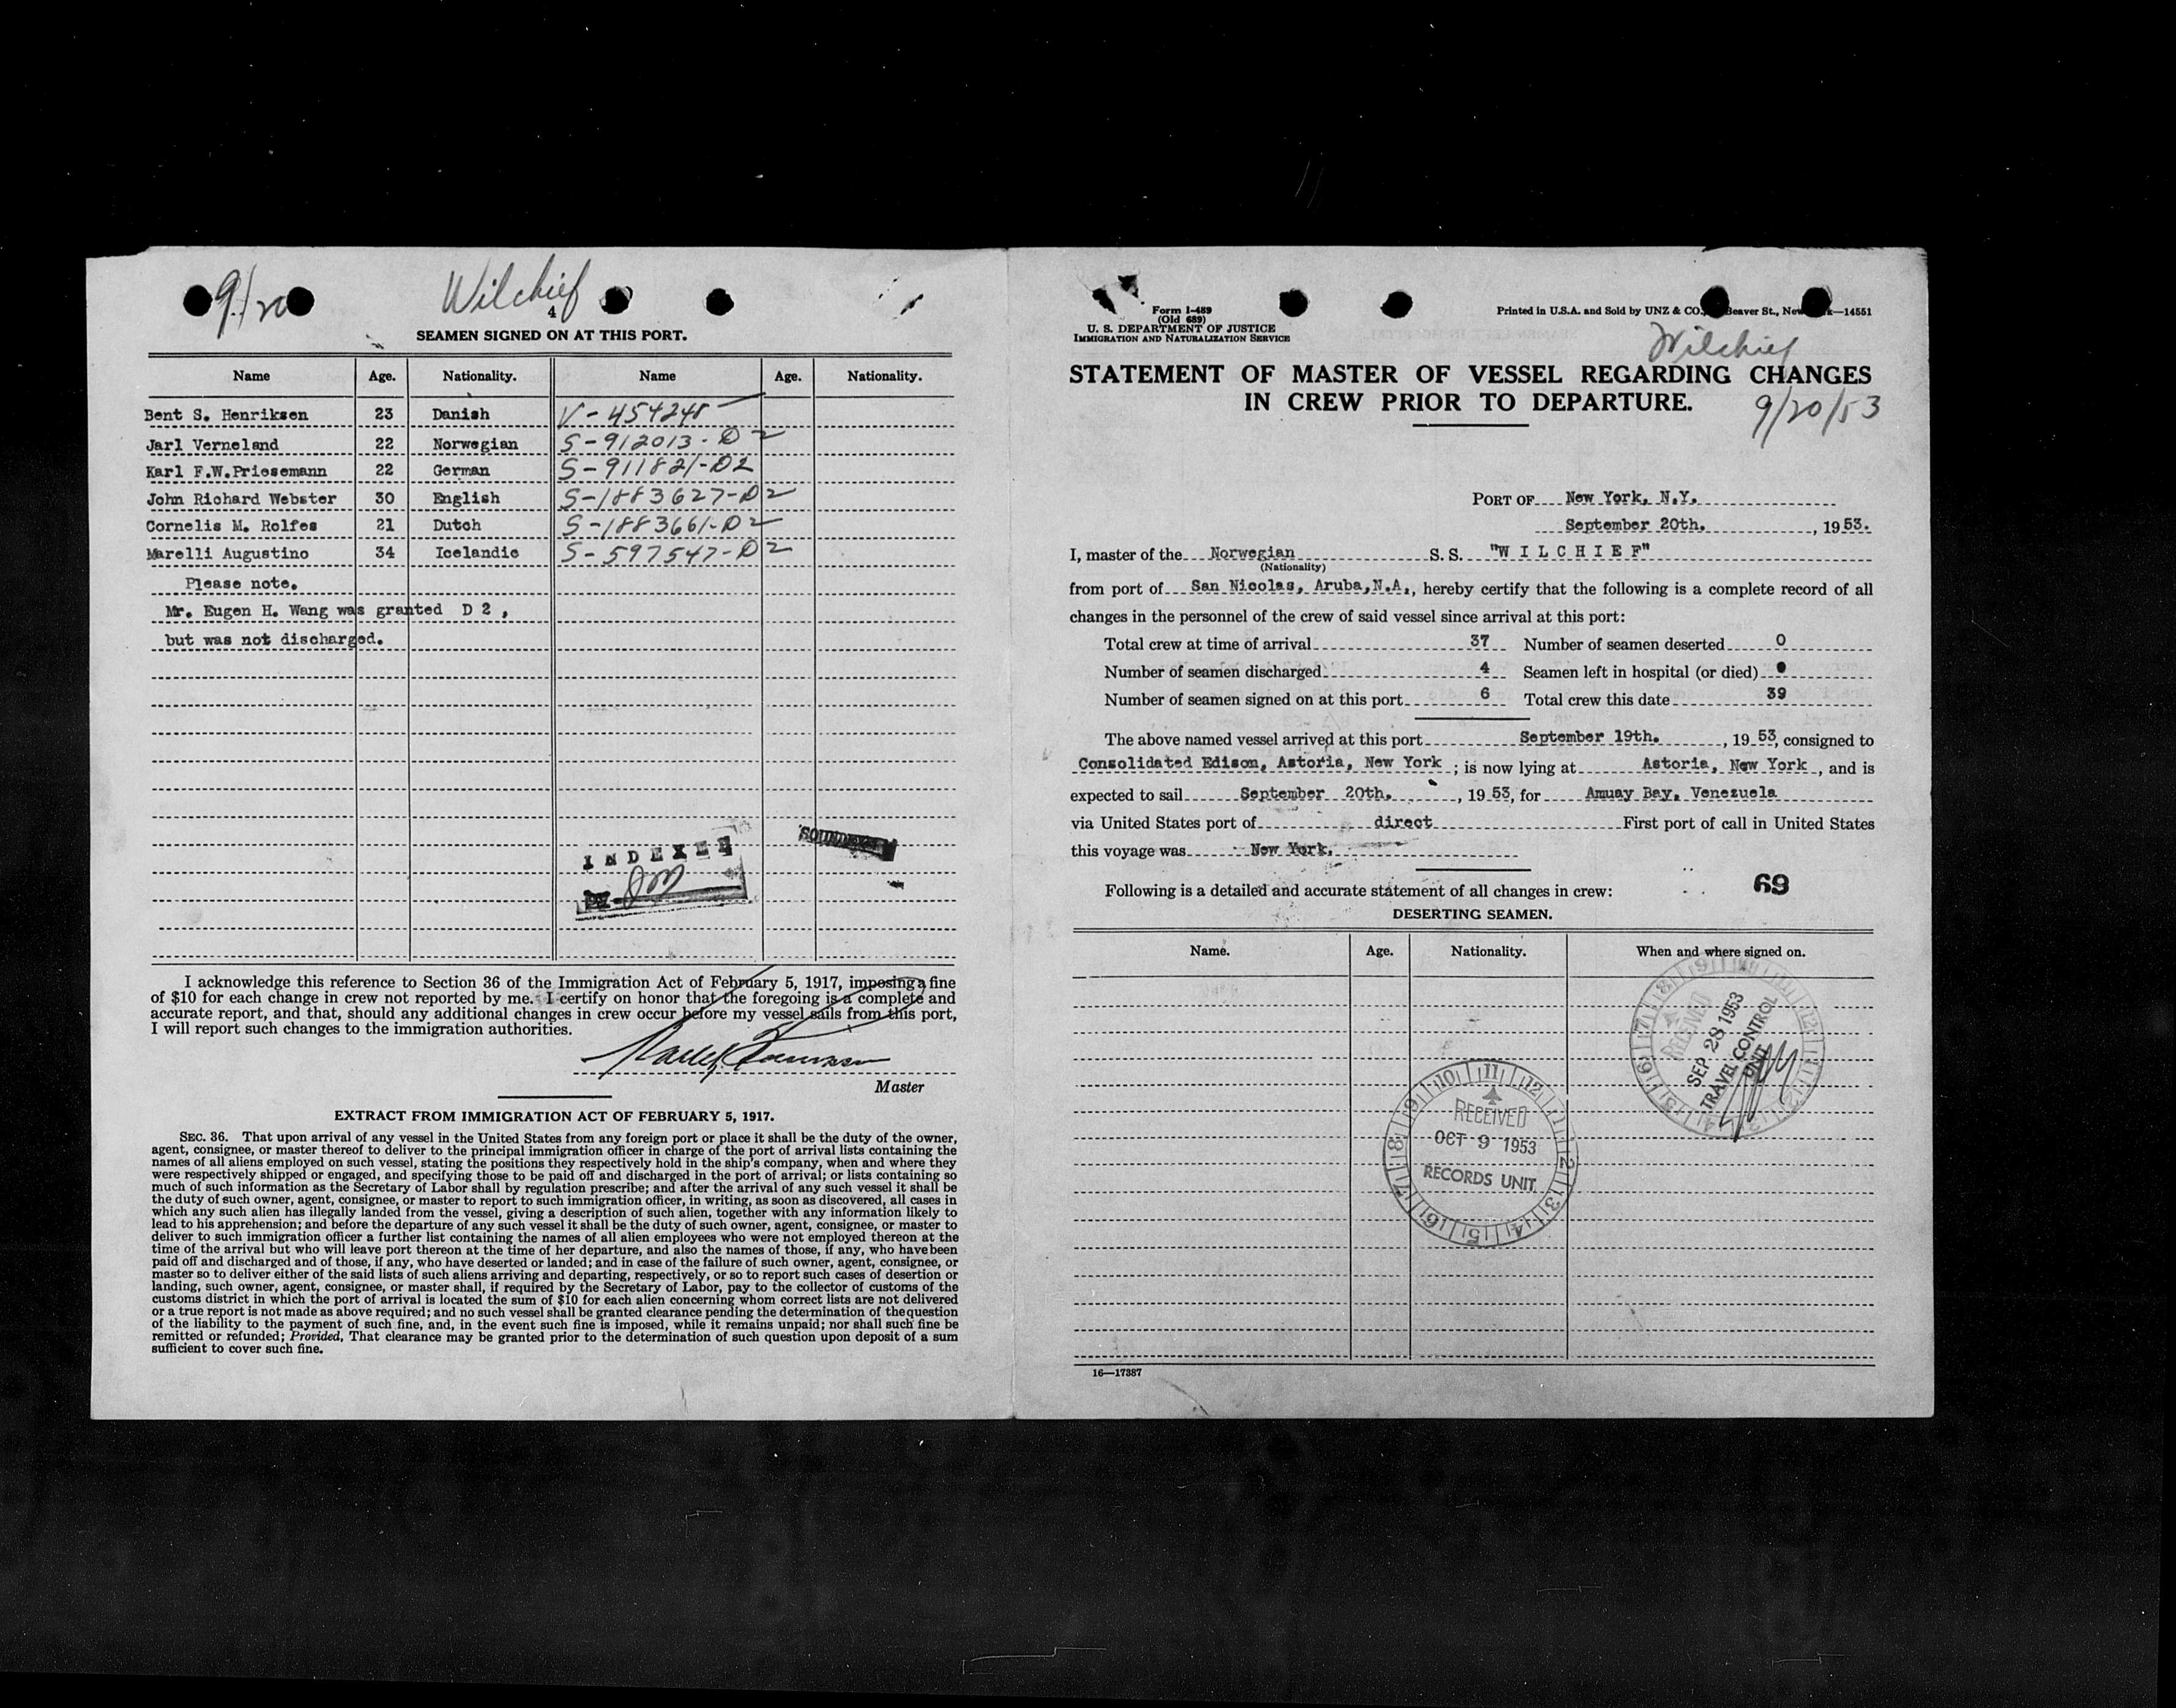 9/20
Wilchief
4
SEAMEN SIGNED ON AT THIS PORT.
Name Age. Nationality. Name Age. Nationality.
Bent S. Henriksen 23 Danish V-454248
Jarl Verneland 22 Norwegian S-912013-D2
Karl F.W.Priesemann 22 German S-911821-D2
John Richard Webster 30 English S-1883627-D2
Cornelis M. Rolfes 21 Dutch S-1883661-D2
Marelli Augustino 34 Icelandic S-597547-D2
Please note.
Mr. Eugen H. Wang was granted D 2 ,
but was not discharged.
INDEXED
SOUNDEXED
I acknowledge this reference to Section 36 of the Immigration Act of February 5, 1917, imposing a fine
of $10 for each change in crew not reported by me. I certify on honor that the foregoing is a complete and
accurate report, and that, should any additional changes in crew occur before my vessel sails from this port,
I will report such changes to the immigration authorities.
Master
EXTRACT FROM IMMIGRATION ACT OF FEBRUARY 5, 1917.
SEC. 36. That upon arrival of any vessel in the United States from any foreign port or place it shall be the duty of the owner,
agent, consignee, or master thereof to deliver to the principal immigration officer in charge of the port of arrival lists containing the
names of all aliens employed on such vessel, stating the positions they respectively hold in the ship's company, when and where they
were respectively shipped or engaged, and specifying those to be paid off and discharged in the port of arrival; or lists containing so
much of such information as the Secretary of Labor shall by regulation prescribe; and after the arrival of any such vessel it shall be
the duty of such owner, agent, consignee, or master to report to such immigration officer, in writing, as soon as discovered, all cases in
which any such alien has illegally landed from the vessel, giving a description of such alien, together with any information likely to
lead to his apprehension; and before the departure of any such vessel it shall be the duty of such owner, agent, consignee, or master to
deliver to such immigration officer a further list containing the names of all alien employees who were not employed thereon at the
time of the arrival but who will leave port thereon at the time of her departure, and also the names of those, if any, who have been
paid off and discharged and of those, if any, who have deserted or landed; and in case of the failure of such owner, agent, consignee, or
master so to deliver either of the said lists of such aliens arriving and departing, respectively, or so to report such cases of desertion or
landing, such owner, agent, consignee, or master shall, if required by the Secretary of Labor, pay to the collector of customs of the
customs district in which the port of arrival is located the sum of $10 for each alien concerning whom correct lists are not delivered
or a true report is not made as above required; and no such vessel shall be granted clearance pending the determination of the question
of the liability to the payment of such fine, and, in the event such fine is imposed, while it remains unpaid; nor shall such fine be
remitted or refunded; Provided, That clearance may be granted prior to the determination of such question upon deposit of a sum
sufficient to cover such fine.
Form I-489
(Old 689)
U. S. DEPARTMENT OF JUSTICE
IMMIGRATION AND NATURALIZATION SERVICE
Printed in U.S.A. and Sold by UNZ & CO., Beaver St., New —14551
Wilchief
STATEMENT OF MASTER OF VESSEL REGARDING CHANGES
IN CREW PRIOR TO DEPARTURE.
9/20/53
PORT OF New York, N.Y.
September 20th. , 19 53.
I, master of the Norwegian S. S. "W I L C H I E F"
(Nationality)
from port of San Nicolas, Aruba,N.A., hereby certify that the following is a complete record of all
changes in the personnel of the crew of said vessel since arrival at this port:
Total crew at time of arrival 37 Number of seamen deserted 0
Number of seamen discharged 4 Seamen left in hospital (or died) 0
Number of seamen signed on at this port 6 Total crew this date 39
The above named vessel arrived at this port September 19th. , 19 53, consigned to
Consolidated Edison, Astoria, New York ; is now lying at Astoria, New York , and is
expected to sail September 20th. , 19 53, for Amuay Bay, Venezuela
via United States port of direct First port of call in United States
this voyage was New York.
Following is a detailed and accurate statement of all changes in crew:
69
DESERTING SEAMEN.
Name. Age. Nationality. When and where signed on.
RECEIVED
SEP 28 1953
TRAVEL CONTROL
UNIT
RECEIVED
OCT 9 1953
RECORDS UNIT
16—17387